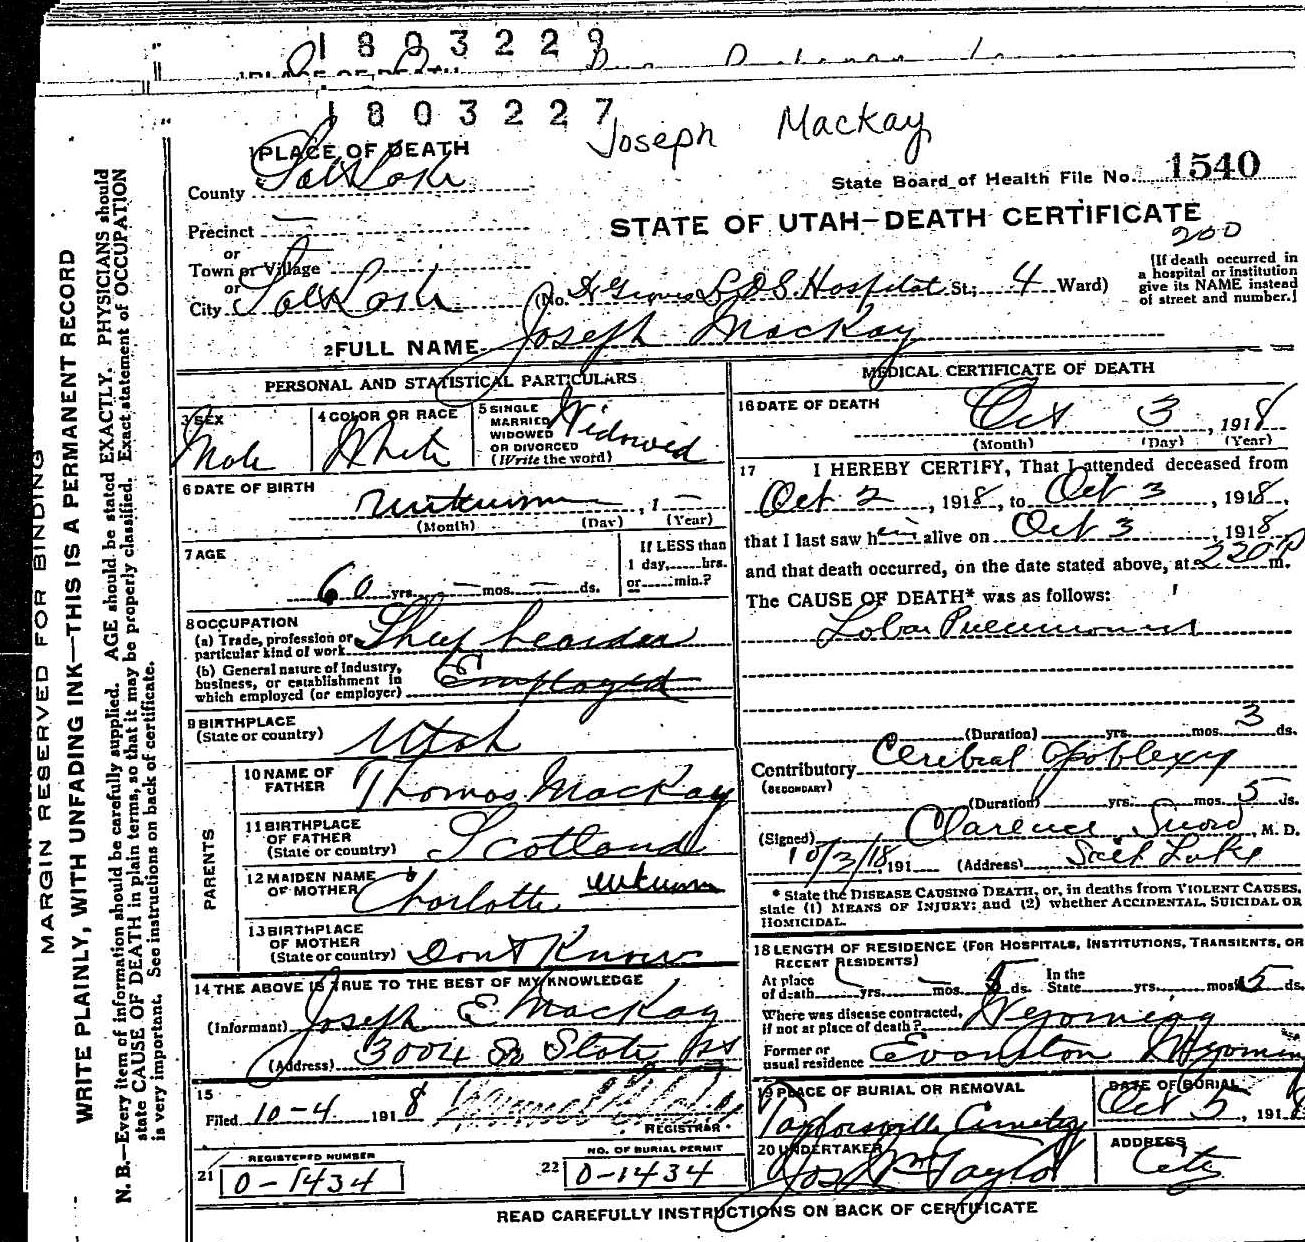 1803229
PLACE OF DEATH
1803227
Joseph Mackay
1 PLACE OF DEATH
County Salt Lake
State Board of Health File No. 1540
Precinct —
STATE OF UTAH—DEATH CERTIFICATE
200
or
Town or Village
or
City Salt Lake (No. LDS Hospital St; 4 Ward)
[If death occurred in
a hospital or institution
give its NAME instead
of street and number.]
2 FULL NAME Joseph MacKay
PERSONAL AND STATISTICAL PARTICULARS
3 SEX
Male
4 COLOR OR RACE
White
5 SINGLE
MARRIED
WIDOWED
OR DIVORCED
(Write the word)
Widowed
6 DATE OF BIRTH
unknown , 1 —
(Month) (Day) (Year)
7 AGE
60 yrs. — mos. — ds.
If LESS than
1 day, hrs.
or min.?
8 OCCUPATION
(a) Trade, profession or
particular kind of work Sheep hearder
(b) General nature of Industry,
business, or establishment in
which employed (or employer) Employed
9 BIRTHPLACE
(State or country) Utah
PARENTS
10 NAME OF
FATHER Thomas MacKay
11 BIRTHPLACE
OF FATHER
(State or country) Scotland
12 MAIDEN NAME
OF MOTHER Charlotte unknown
13 BIRTHPLACE
OF MOTHER
(State or country) Dont Know
14 THE ABOVE IS TRUE TO THE BEST OF MY KNOWLEDGE
(Informant) Joseph E MacKay
(Address) 3004 So State
15
Filed 10-4 1918
REGISTRAR
21 REGISTERED NUMBER
0-1434
22 NO. OF BURIAL PERMIT
0-1434
MEDICAL CERTIFICATE OF DEATH
16 DATE OF DEATH
Oct 3 , 1918
(Month) (Day) (Year)
17 I HEREBY CERTIFY, That I attended deceased from
Oct 2 , 1918, to Oct 3 , 1918,
that I last saw him alive on Oct 3 , 1918
and that death occurred, on the date stated above, at 220 P m.
The CAUSE OF DEATH* was as follows:
Lobar Pneumonia
(Duration) yrs. mos. 3 ds.
Contributory Cerebral Apoplexy
(SECONDARY)
(Duration) yrs. mos. 5 ds.
(Signed) Clarence Snow, M. D.
10/3/18, 191 (Address) Salt Lake
* State the DISEASE CAUSING DEATH, or, in deaths from VIOLENT CAUSES,
state (1) MEANS OF INJURY; and (2) whether ACCIDENTAL, SUICIDAL OR
HOMICIDAL.
18 LENGTH OF RESIDENCE (FOR HOSPITALS, INSTITUTIONS, TRANSIENTS, OR
RECENT RESIDENTS)
At place
of death yrs. — mos. 5 ds.
In the
State yrs. mos. 5 ds.
Where was disease contracted,
if not at place of death? Wyoming
Former or
usual residence Evanston Wyoming
19 PLACE OF BURIAL OR REMOVAL
Taylorsville Cemetery
DATE OF BURIAL
Oct 5 , 1918
20 UNDERTAKER
Jos Wm Taylor
ADDRESS
City
READ CAREFULLY INSTRUCTIONS ON BACK OF CERTIFICATE
MARGIN RESERVED FOR BINDING
WRITE PLAINLY, WITH UNFADING INK—THIS IS A PERMANENT RECORD
N. B.—Every item of information should be carefully supplied. AGE should be stated EXACTLY. PHYSICIANS should
state CAUSE OF DEATH in plain terms, so that it may be properly classified. Exact statement of OCCUPATION
is very important. See instructions on back of certificate.